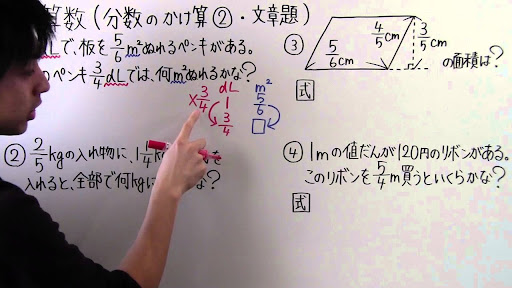 算数(分数のかけ算②・文章題)
dLで、板を5/6m²ぬれるペンキがある。
のペンキ3/4dLでは、何m²ぬれるかな?
dL m²
×3/4 1 5/6
3/4 □
② 2/5kgの入れ物に、1 1/4k を
入れると、全部で何kgに な?
③ 5/6cm 4/5cm 3/5cm の面積は?
式
④ 1mの値だんが120円のリボンがある。
このリボンを5/4m買うといくらかな?
式